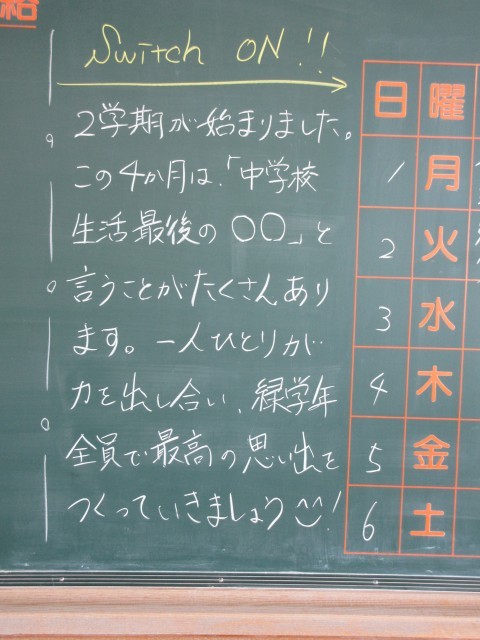 給
Switch ON!!
2学期が始まりました。
この4か月は、「中学校
生活最後の○○」と
言うことがたくさんあり
ます。一人ひとりが
力を出し合い、緑学年
全員で最高の思い出を
つくっていきましょう!
日 曜
1 月
2 火
3 水
4 木
5 金
6 土